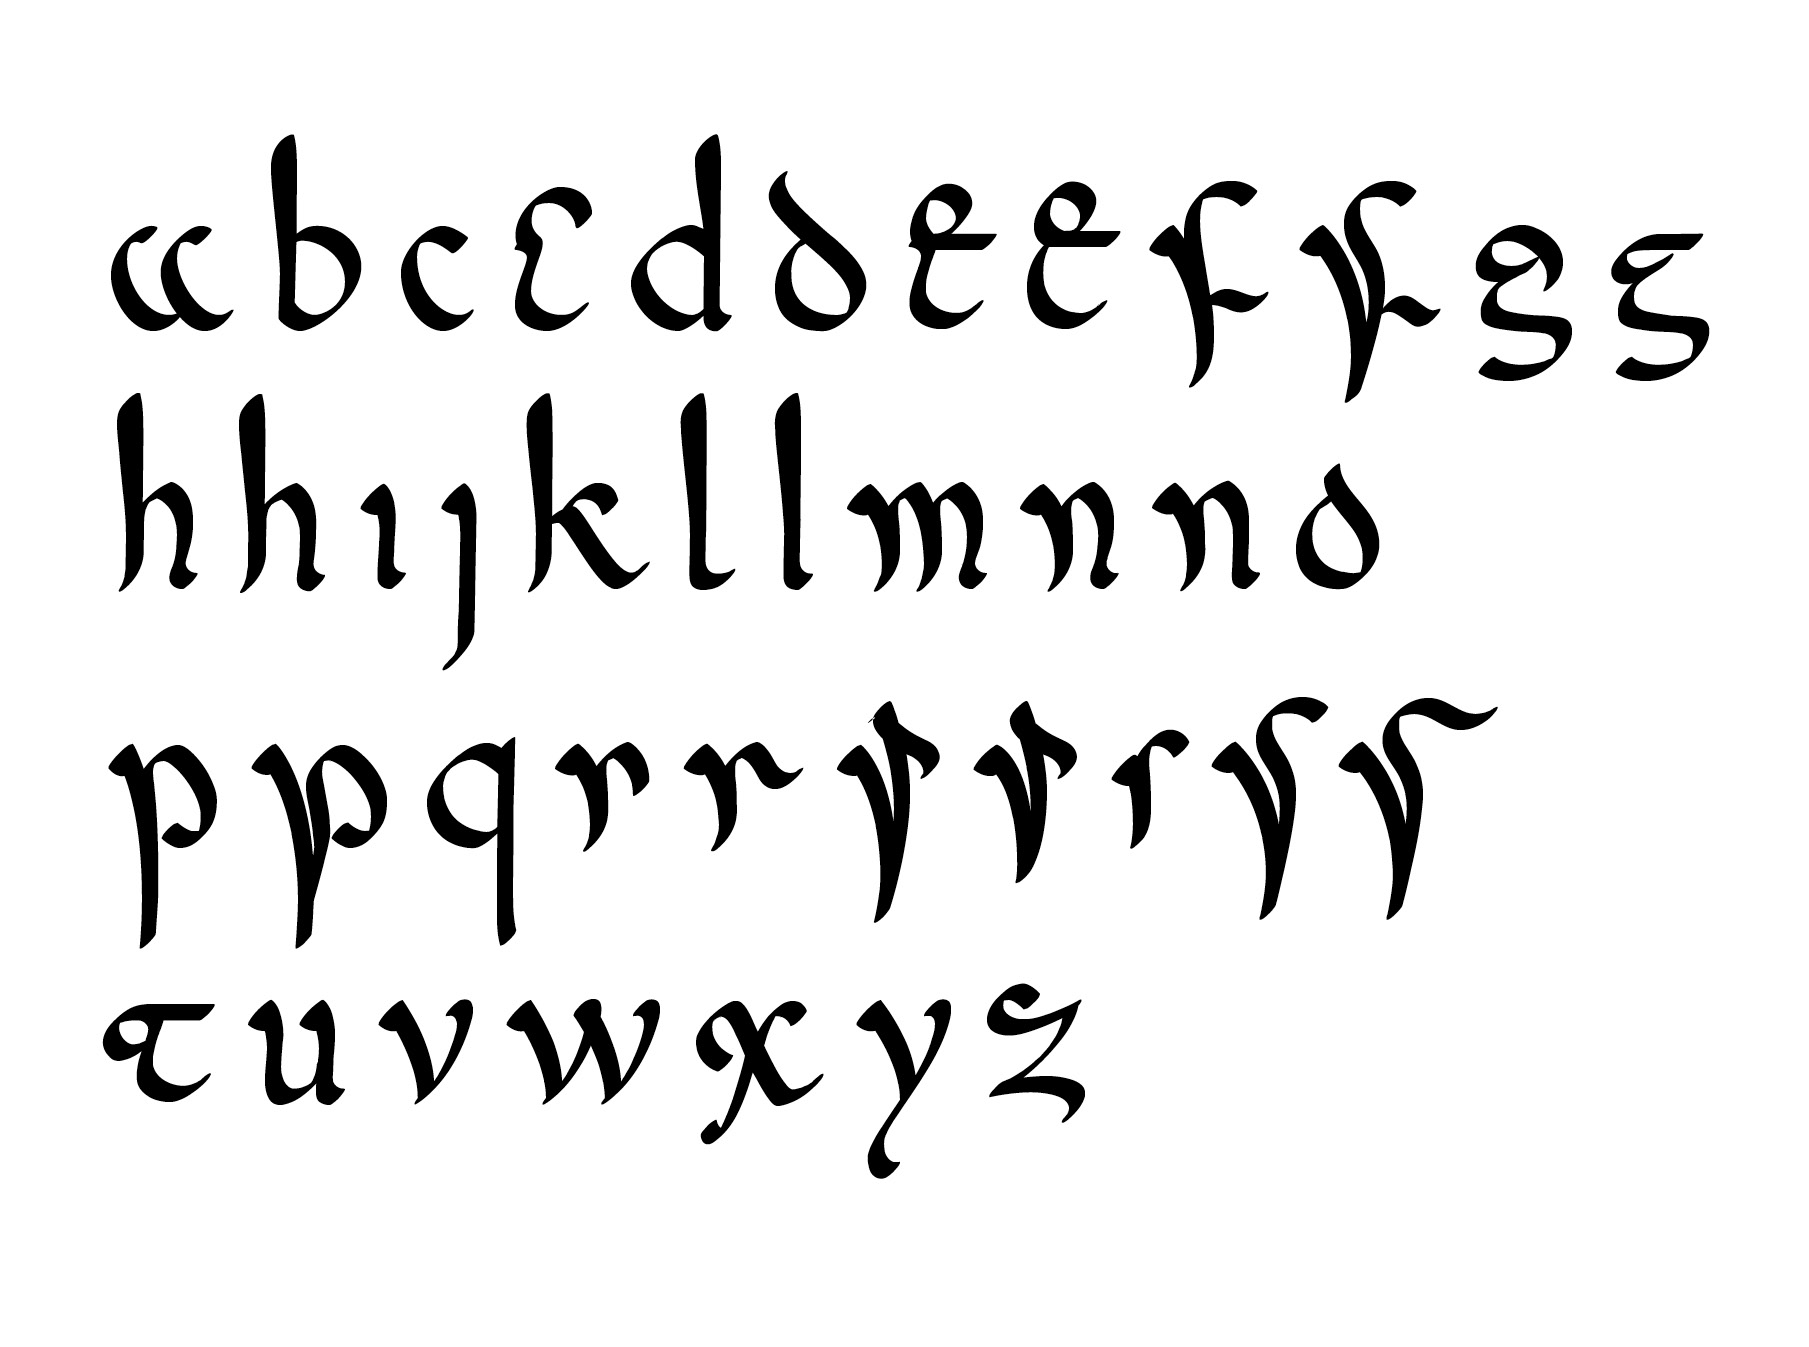 a b c c d d e e f f g g
h h ı ȷ k l l m n n o
p p q r r r r r s s
t u v w x y z